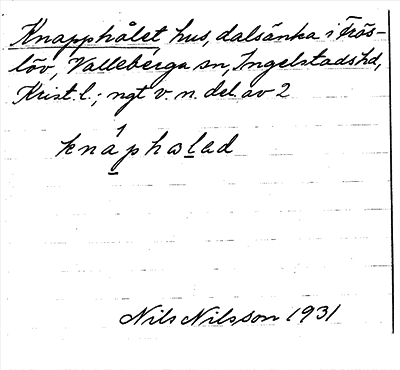 Knapphålet, hus, dalsänka i Frös-
löv, Valleberga sn, Ingelstads hd,
Krist. l.; ngt v. n. del. av 2
knáphalad
Nils Nilsson 1931